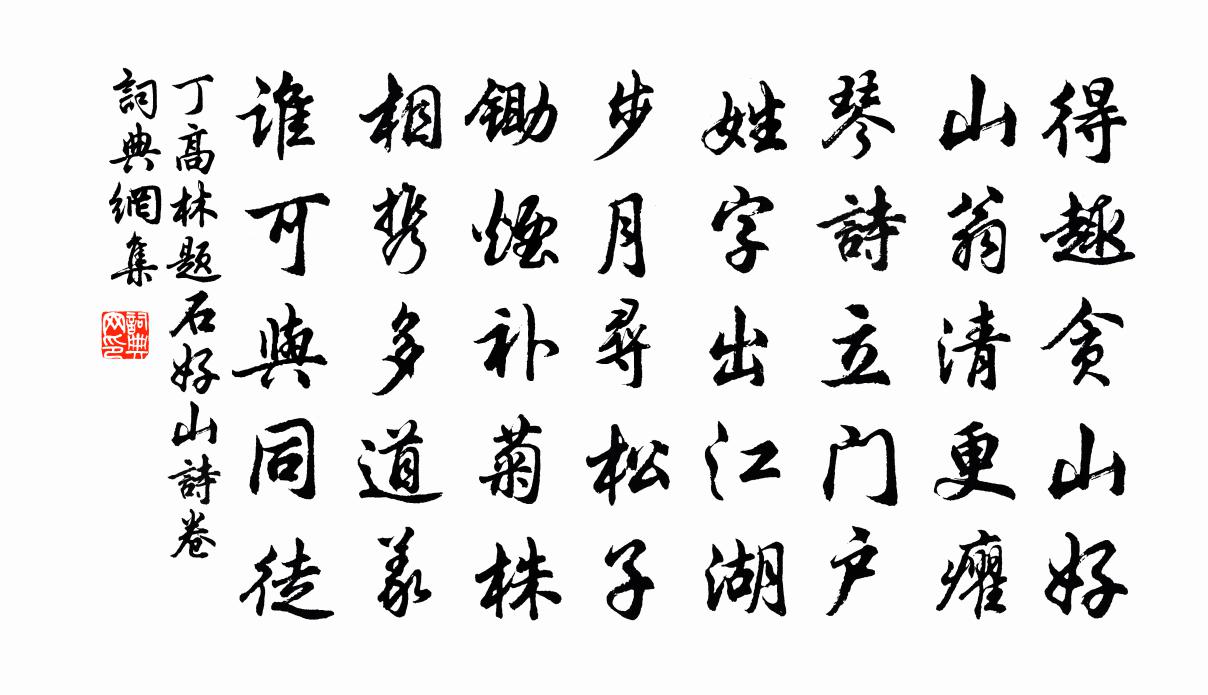 得趣贪山好
山翁清更癯
琴詩立门户
姓字出江湖
步月尋松子
锄煙补菊株
相携多道义
谁可與同徒
丁高林题石好山詩卷
詞典網集
詞典网印